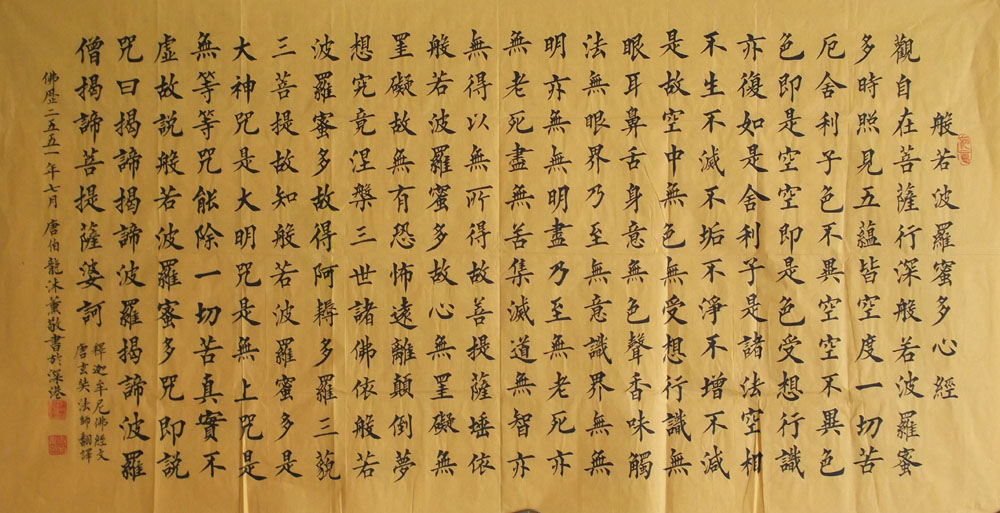 般若波羅蜜多心經
觀自在菩薩行深般若波羅蜜
多時照見五蘊皆空度一切苦
厄舍利子色不異空空不異色
色即是空空即是色受想行識
亦復如是舍利子是諸法空相
不生不滅不垢不淨不增不減
是故空中無色無受想行識無
眼耳鼻舌身意無色聲香味觸
法無眼界乃至無意識界無無
明亦無無明盡乃至無老死亦
無老死盡無苦集滅道無智亦
無得以無所得故菩提薩埵依
般若波羅蜜多故心無罣礙無
罣礙故無有恐怖遠離顛倒夢
想究竟涅槃三世諸佛依般若
波羅蜜多故得阿耨多羅三藐
三菩提故知般若波羅蜜多是
大神咒是大明咒是無上咒是
無等等咒能除一切苦真實不
虛故說般若波羅蜜多咒即說
咒曰揭諦揭諦波羅揭諦波羅
僧揭諦菩提薩婆訶
釋迦牟尼佛經文
唐玄奘法師翻譯
佛歷二五五一年七月 唐伯龍沐薰敬書於深港